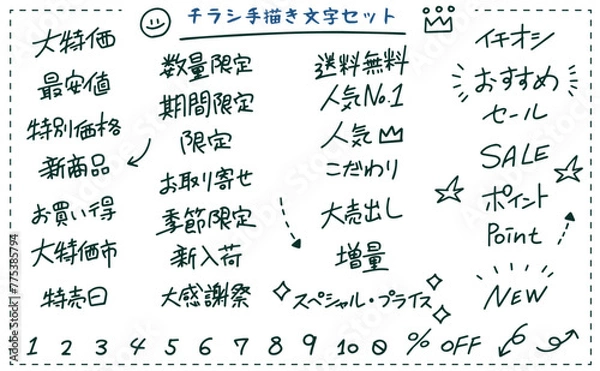 チラシ手描き文字セット
大特価
最安値
特別価格
新商品
お買い得
大特価市
特売日
数量限定
期間限定
限定
お取り寄せ
季節限定
新入荷
大感謝祭
送料無料
人気No.1
人気
こだわり
大売出し
増量
スペシャル・プライス
イチオシ
おすすめ
セール
SALE
ポイント
Point
NEW
1 2 3 4 5 6 7 8 9 10 0 % OFF
Adobe Stock | #775385794